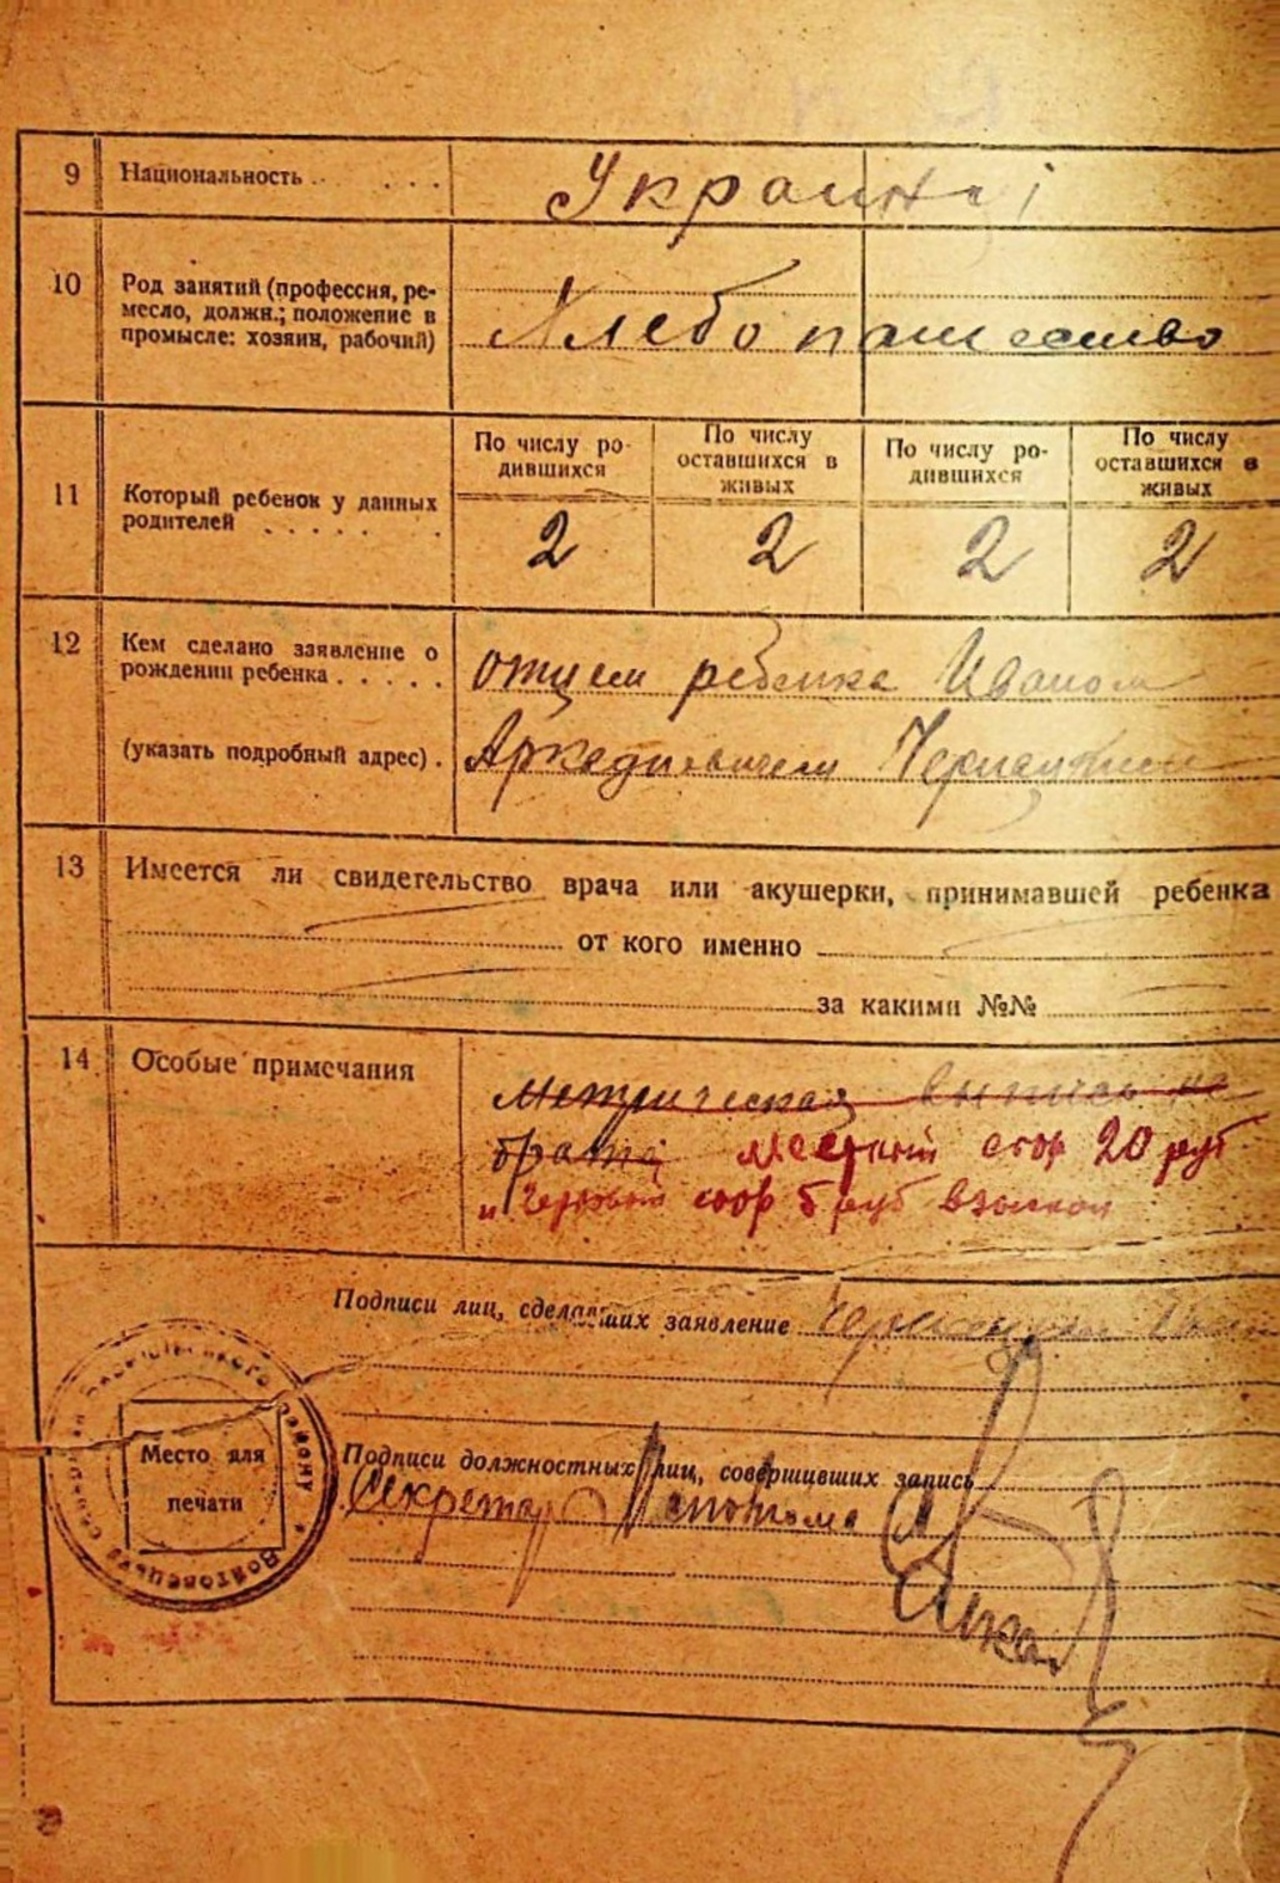 9 Национальность
Украинці
10 Род занятий (профессия, ре-
месло, должн.; положение в
промысле: хозяин, рабочий)
Хлебопашество
11 Который ребенок у данных
родителей
По числу ро-
дившихся
По числу
оставшихся в
живых
По числу ро-
дившихся
По числу
оставшихся в
живых
2 2 2 2
12 Кем сделано заявление о
рождении ребенка
(указать подробный адрес).
отцем ребенка Иваном
Аркадиевичем
13 Имеется ли свидетельство врача или акушерки, принимавшей ребенка
от кого именно
за какими №№
14 Особые примечания
Метрическая выпись не
брата местный сбор 20 руб
и сбор 5 руб взыскан
Подписи лиц, сделавших заявление
Место для
печати
району
Подписи должностных лиц, совершивших запись
Секретар